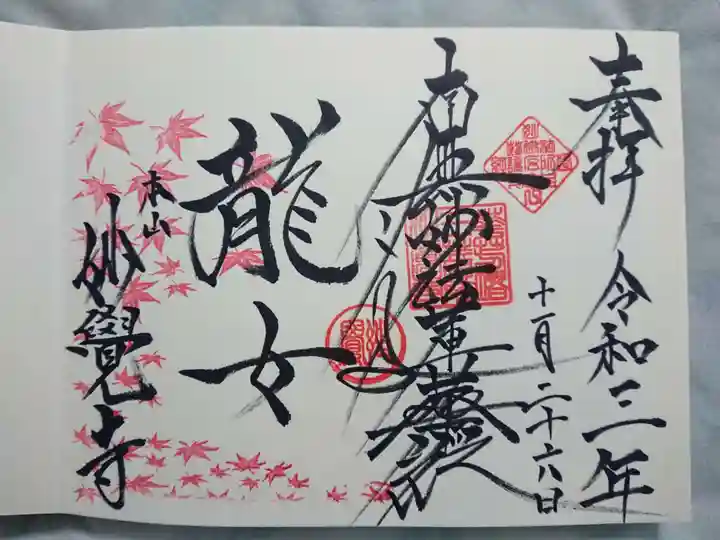 奉拝 令和三年
十一月二十六日
南無妙法蓮華経
龍女
本山
妙覺寺